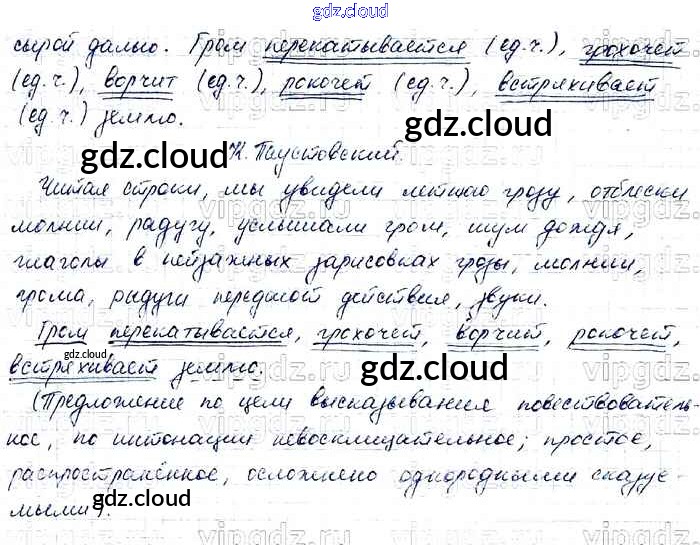 gdz.cloud
сырой далью. Гром перекатывается (ед.ч.), грохочет
(ед.ч.), ворчит (ед.ч.), рокочет (ед.ч.), встряхивает
(ед.ч.) землю.
К. Паустовский.
Читая строки, мы увидели летнюю грозу, отблески
молнии, радугу, услышали гром, шум дождя,
глаголы в пейзажных зарисовках грозы, молнии,
грома, радуги передают действия, звуки.
Гром перекатывается, грохочет, ворчит, рокочет,
встряхивает землю.
(Предложение по цели высказывания повествователь-
ное, по интонации невосклицательное; простое,
распространённое, осложнено однородными сказуе-
мыми).
gdz.cloud
gdz.cloud
gdz.cloud
gdz.cloud
gdz.cloud
gdz.cloud
vipgdz.ru